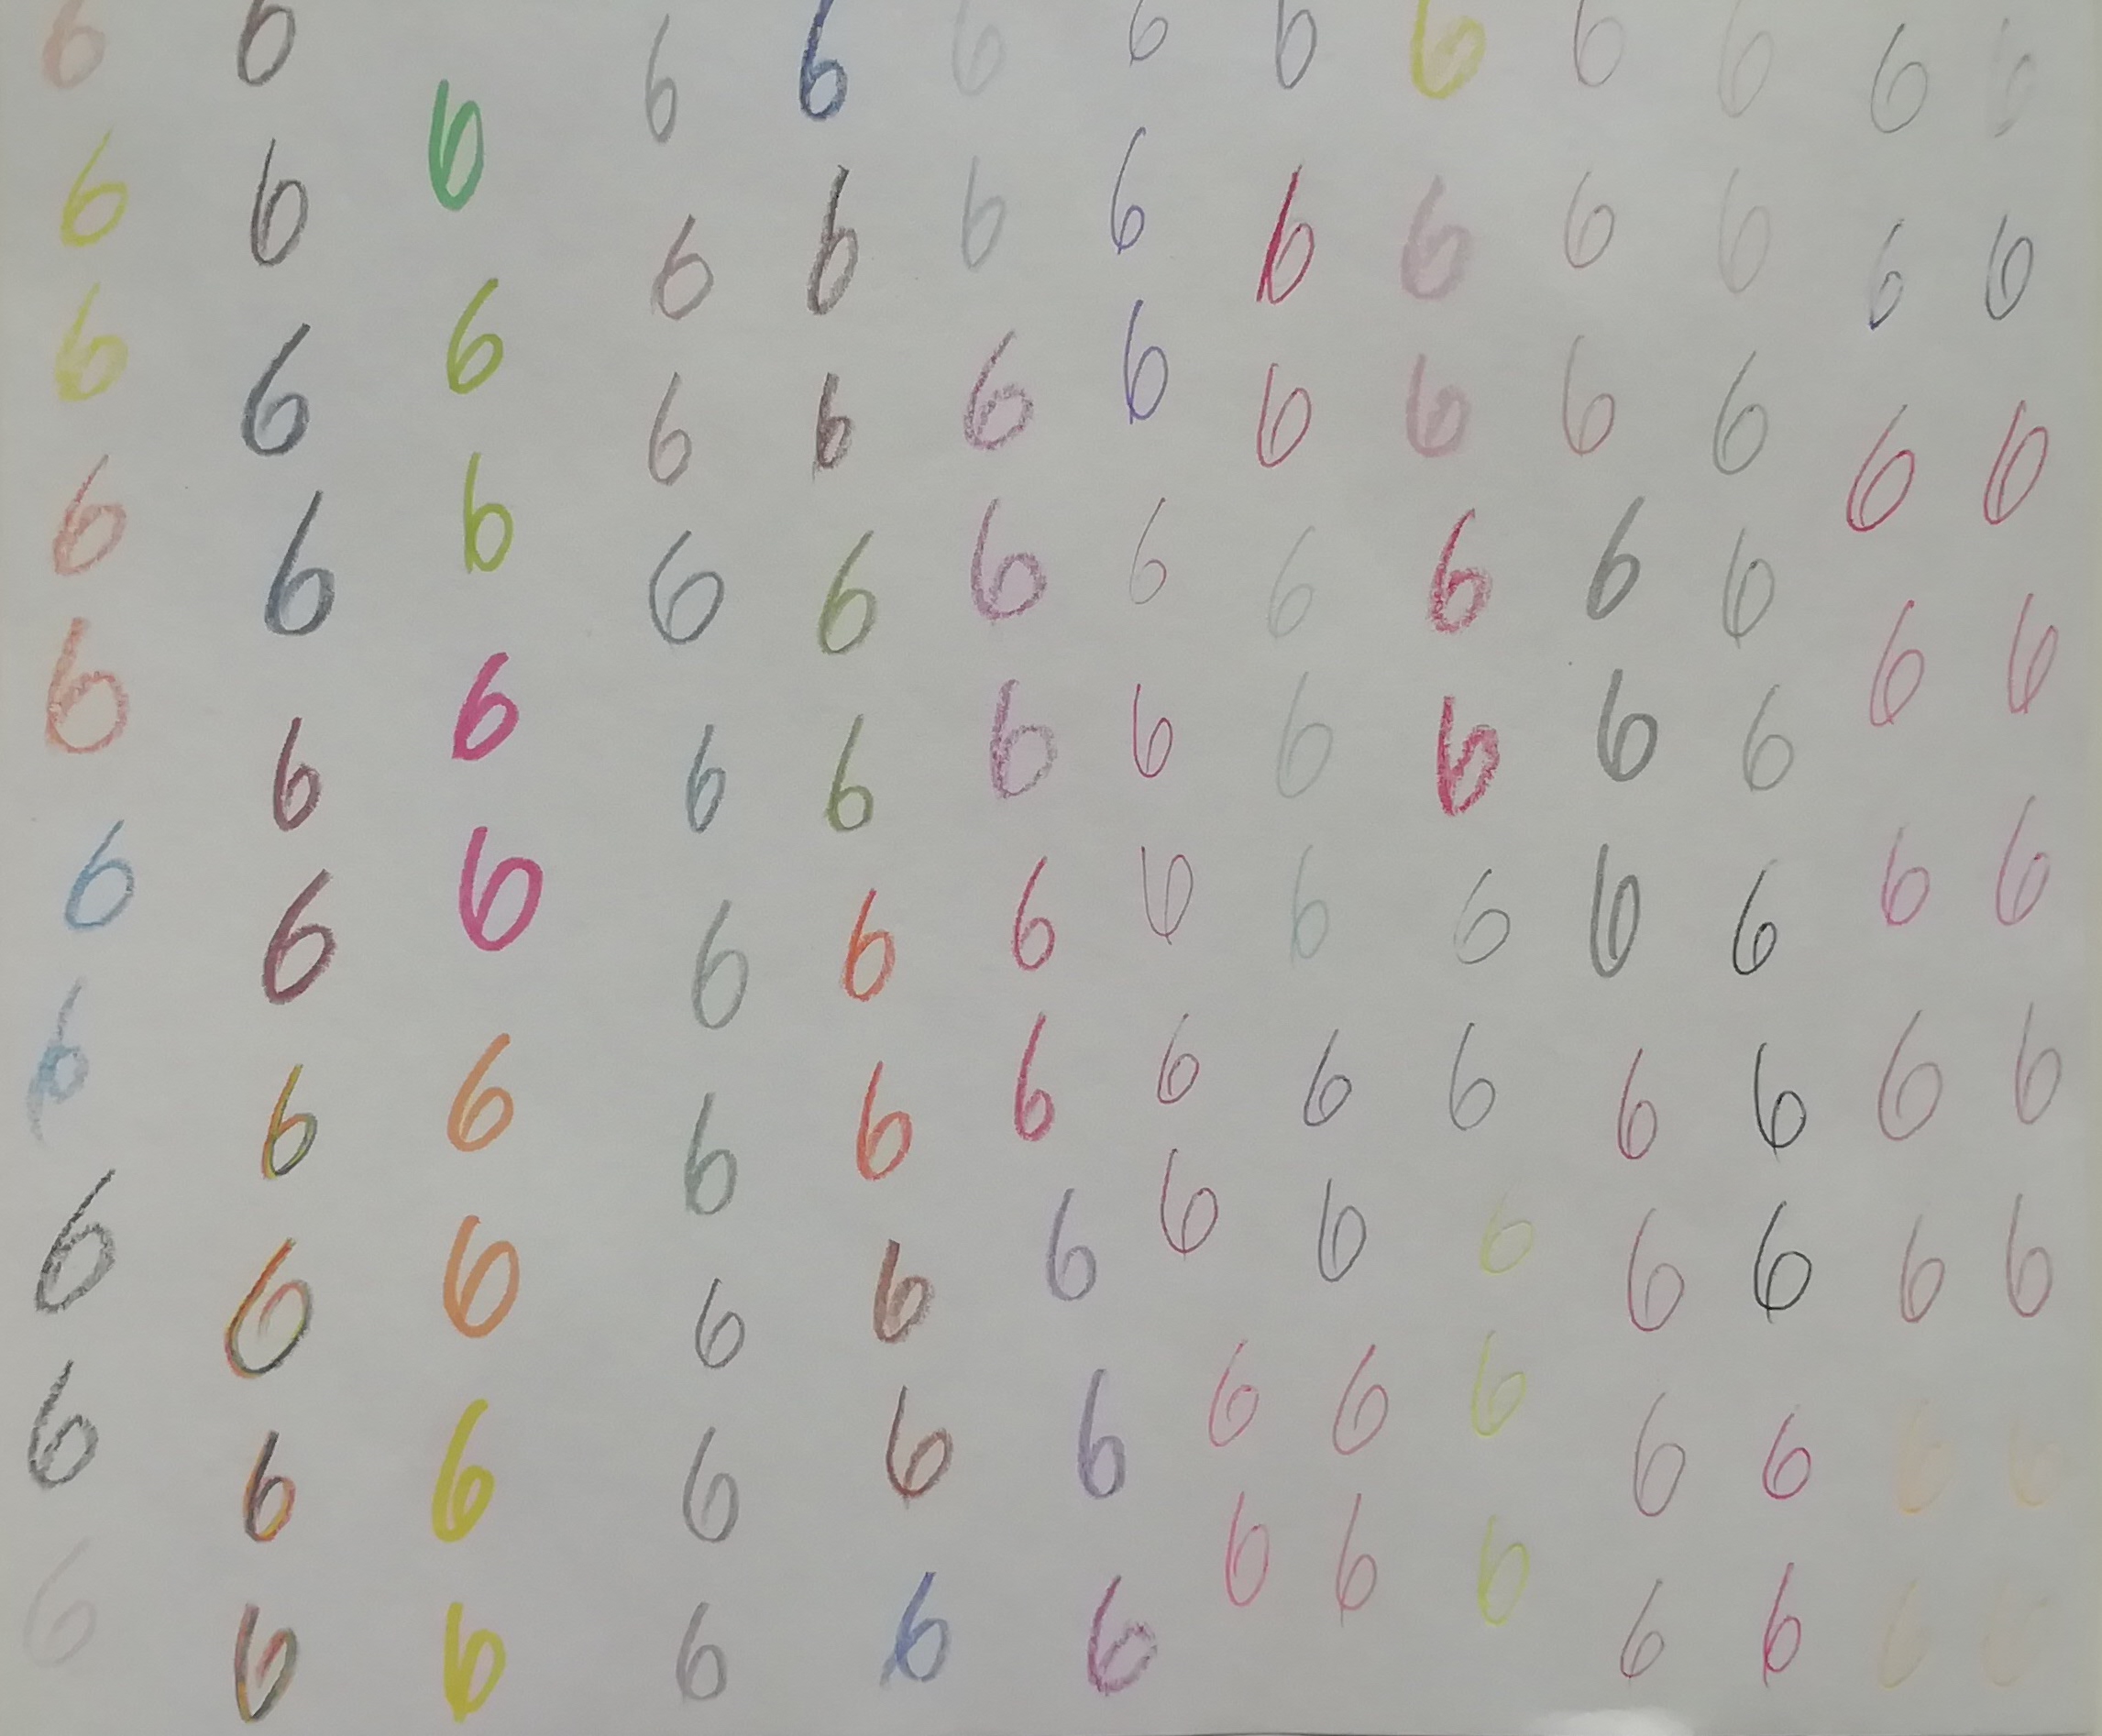 6 6 6 6 6 6 6 6 6 6 6 6 6
6 6 6 6 6 6 6 6 6 6 6 6 6
6 6 6 6 6 6 6 6 6 6 6 6 6
6 6 6 6 6 6 6 6 6 6 6 6 6
6 6 6 6 6 6 6 6 6 6 6 6 6
6 6 6 6 6 6 6 6 6 6 6 6 6
6 6 6 6 6 6 6 6 6 6 6 6 6
6 6 6 6 6 6 6 6 6 6 6 6 6
6 6 6 6 6 6 6 6 6 6 6 6 6
6 6 6 6 6 6 6 6 6 6